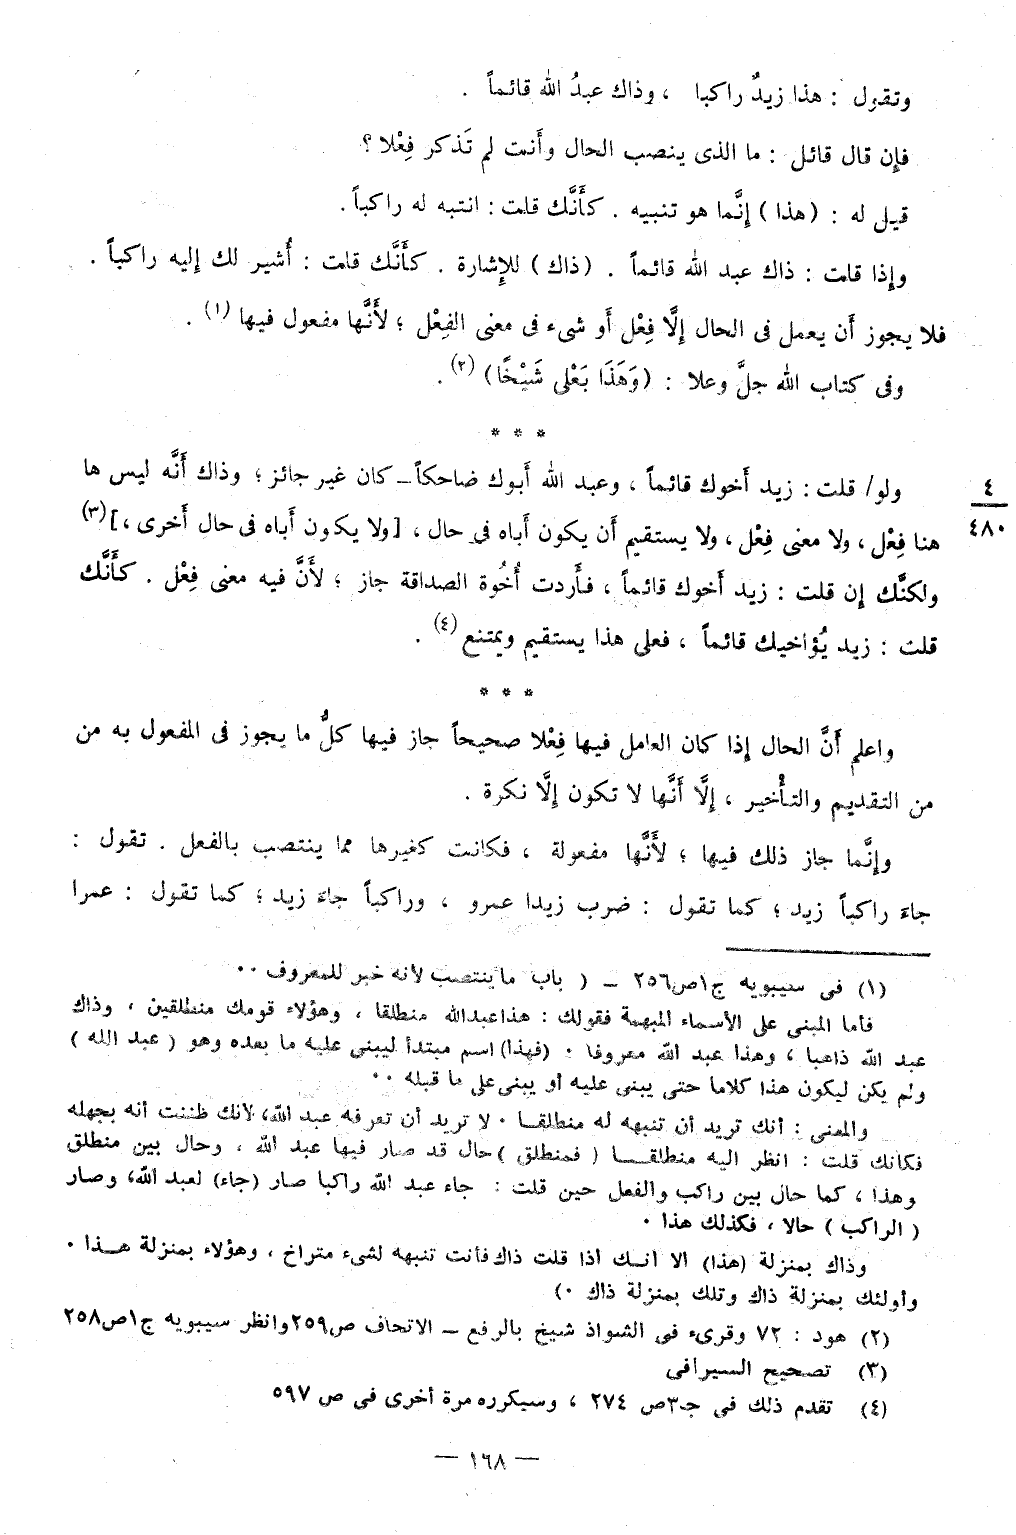 وتقول : هذا زيدٌ راكبا ، وذاك عبدُ الله قائماً .
فإِن قال قائل : ما الذى ينصب الحال وأَنت لم تَذكر فِعْلا ؟
قيل له : (هذا) إِنَّما هو تنبيه . كأَنَّك قلت : انتبه له راكباً .
وإِذا قلت : ذاك عبد الله قائماً . (ذاك) للإِشارة . كأَنَّك قلت : أُشير لك إِليه راكباً .
فلا يجوز أَن يعمل فى الحال إِلَّا فِعْل أَو شىء فى معنى الفِعْل ؛ لأَنَّها مفعول فيها (١) .
وفى كتاب الله جلَّ وعلا : (وَهَذَا بَعْلِى شَيْخًا) (٢) .
* * *
ولو/ قلت : زيد أَخوك قائماً ، وعبد الله أَبوك ضاحكاً – كان غير جائز ؛ وذاك أَنَّه ليس ها
٤
٤٨٠
هنا فِعْل ، ولا معنى فِعْل ، ولا يستقيم أَن يكون أَباه فى حال ، [ولا يكون أَباه فى حال أَخرى ،] (٣)
ولكنَّك إِن قلت : زيد أَخوك قائماً ، فأَردت أُخُوة الصداقة جاز ؛ لأَنَّ فيه معنى فِعْل . كأَنَّك
قلت : زيد يُؤاخيك قائماً ، فعلى هذا يستقيم ويمتنع (٤) .
* * *
واعلم أَنَّ الحال إِذا كان العامل فيها فِعْلا صحيحاً جاز فيها كلُّ ما يجوز فى المفعول به من
من التقديم والتأْخير ، إِلَّا أَنَّها لا تكون إِلَّا نكرة .
وإِنَّما جاز ذلك فيها ؛ لأَنَّها مفعولة ، فكانت كغيرها مما ينتصب بالفعل . تقول :
جاءَ راكباً زيد ؛ كما تقول : ضرب زيدا عمرو ، وراكباً جاءَ زيد ؛ كما تقول : عمرا
(١) فى سيبويه ج١ص٢٥٦ – ( باب ما ينتصب لأنه خبر للمعروف ٠٠
فأما المبنى على الأسماء المبهمة فقولك : هذا عبدالله منطلقا ، وهؤلاء قومك منطلقين ، وذاك
عبد الله ذاهبا ، وهذا عبد الله معروفا ٠ (فهذا) اسم مبتدأ ليبنى عليه ما بعده وهو ( عبد الله )
ولم يكن ليكون هذا كلاما حتى يبنى عليه أو يبنى على ما قبله ٠٠
والمعنى : أنك تريد أن تنبهه له منطلقا ٠ لا تريد أن تعرفه عبد الله، لأنك ظننت أنه يجهله
فكأنك قلت : انظر اليه منطلقا ( فمنطلق ) حال قد صار فيها عبد الله ، وحال بين منطلق
وهذا ، كما حال بين راكب والفعل حين قلت : جاء عبد الله راكبا صار (جاء) لعبد الله، وصار
( الراكب ) حالا ، فكذلك هذا ٠
وذاك بمنزلة (هذا) الا انك اذا قلت ذاك فأنت تنبهه لشىء متراخ ، وهؤلاء بمنزلة هذا ٠
وأولئك بمنزلة ذاك وتلك بمنزلة ذاك ٠)
(٢) هود : ٧٢ وقرىء فى الشواذ شيخ بالرفع – الاتحاف ص٢٥٩ وانظر سيبويه ج١ص٢٥٨
(٣) تصحيح السيرافى
(٤) تقدم ذلك فى جـ٣ص ٢٧٤ ، وسيكرره مرة أخرى فى ص ٥٩٧
— ١٦٨ —